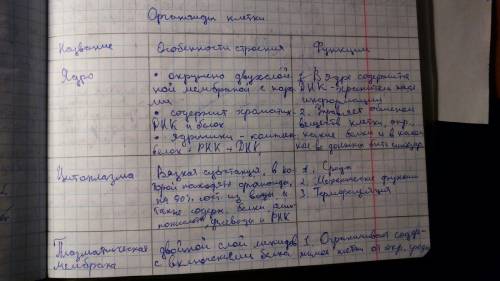 Органоиды клетки
Название Особенности строения Функции
Ядро • окружено двухслой- 1. В ядре содержится
ной мембраной с пора- ДНК - хранитель насл
ми информации
• содержит хроматин- 2. Управляет обменом
ДНК и белок веществ клетки, опр.
• ядрышки - какие белки и в какой
белок + РНК + ДНК должны быть
Цитоплазма Вязкая субстанция, в ко- 1. Среда
торой находятся органоиды, 2. Механические функции
на 90% сост. из воды и 3. Терморегуляция
также содерж. белки
углеводы и РНК
Плазматическая двойной слой липидов 1. Ограничивает содер-
мембрана с включениями белка жимое клетки от окр. среды